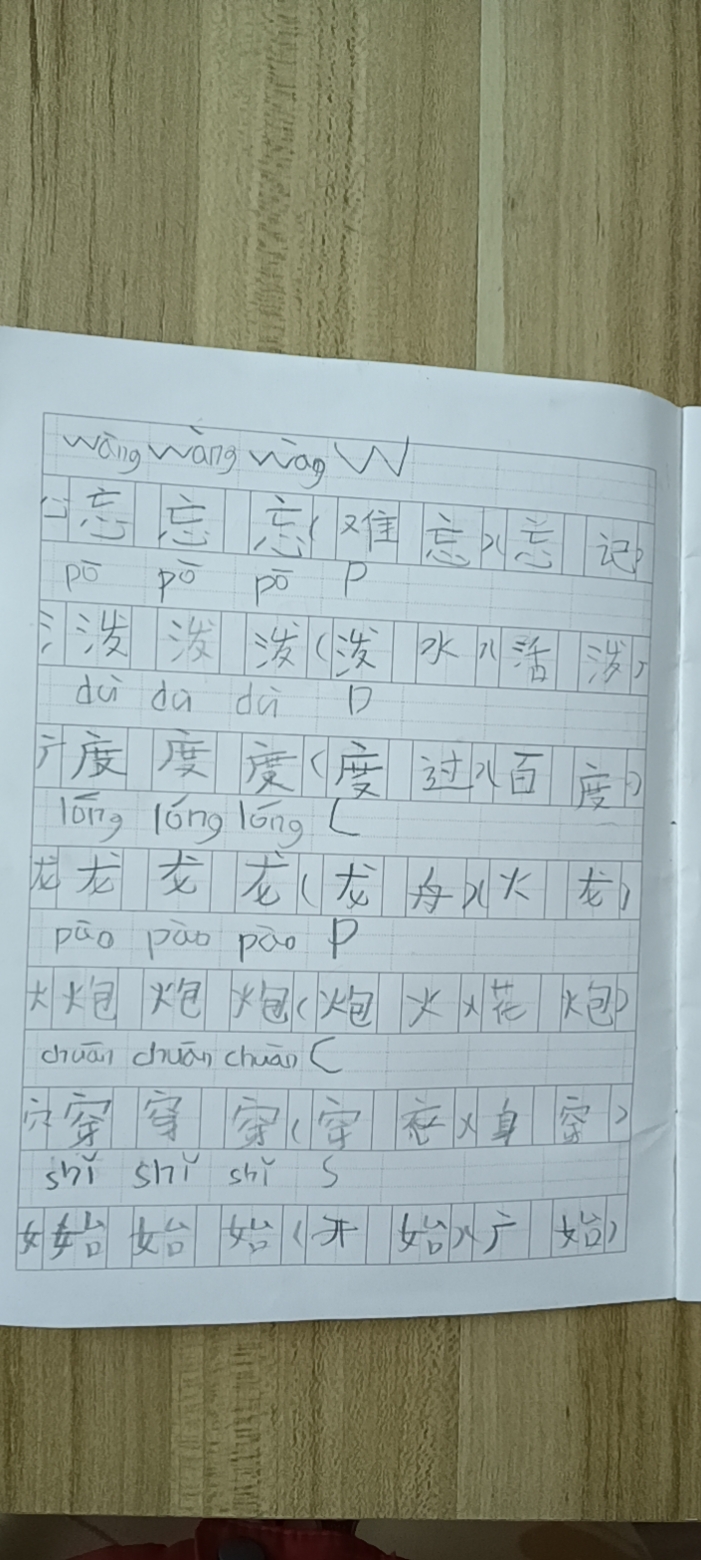 wàng wàng wàng W
心 忘 忘 忘 ( 难 忘 ) ( 忘 记 )
pō pō pō P
氵 泼 泼 泼 ( 泼 水 ) ( 活 泼 )
dù du dù D
广 度 度 度 ( 度 过 ) ( 百 度 )
lóng lóng lóng L
龙 龙 龙 龙 ( 龙 舟 ) ( 火 龙 )
pào pào pào P
火 炮 炮 炮 ( 炮 火 ) ( 花 炮 )
chuān chuān chuān C
穴 穿 穿 穿 ( 穿 衣 ) ( 身 穿 )
shǐ shǐ shǐ S
女 始 始 始 ( 开 始 ) ( 始 )